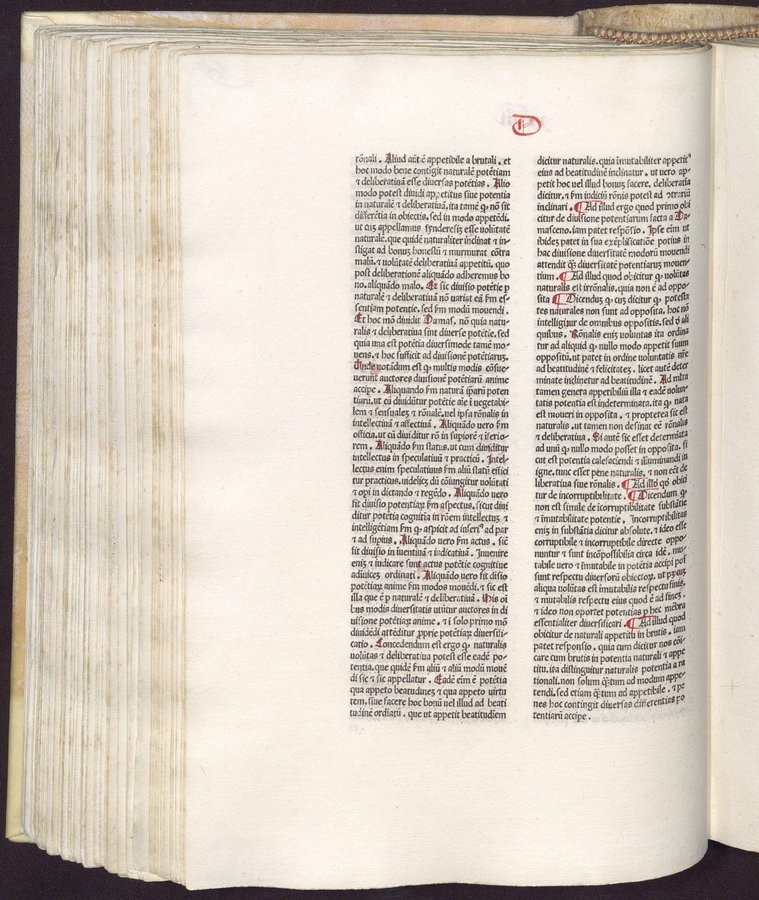 D
rōnali. Aliud aūt ē appetibile a brutali. et
hoc modo bene contigit naturalē potētiam
⁊ deliberatiuā esse diuersas potētias. Alio
modo potest diuidi appetitus siue potentia
in naturalē ⁊ deliberatiuā. ita tamē ꝙ nō sit
differētia in obiectis. sed in modo appetēdi.
ut cuꝫ appellamus synderesiꝫ esse uolūtatē
naturalē. que quidē naturaliter inclinat ⁊ in-
stigat ad bonuꝫ honestū ⁊ murmurat cōtra
malū. ⁊ uolūtatē deliberatiuā appetitū. quo
post deliberationē aliquādo adheremus bo
no. aliquādo malo. Et sic diuisio potētie ꝑ
naturalē ⁊ deliberatiuā nō uariat eā ẜm es-
sentiam potentie. sed ẜm modū mouendi.
Et hoc mō diuidit Damas. nō quia natu-
ralis ⁊ deliberatiua sint diuerse potētie. sed
quia una est potētia diuersimode tamē mo-
uens. ⁊ hoc sufficit ad diuisionē potētiaruꝫ.
Unde notādum est ꝙ multis modis cōsue-
uerunt auctores diuisionē potētiarū anime
accipe. Aliquando ẜm naturā ip̄arū poten
tiarū. ut cū diuidūtur potētie aīe ī uegetabi-
lem ⁊ sensualeꝫ ⁊ rōnalē. uel ipsa rōnalis in
intellectiuā ⁊ affectiuā. Aliquādo uero ẜm
officia. ut cū diuiditur rō in supiorē ⁊ īferio-
rem. Aliquādo ẜm status. ut cum diuiditur
intellectus in speculatiuū ⁊ practicū. Intel-
lectus enim speculatiuus ẜm aliū statū effici
tur practicus. uidelicꝫ dū cōiungitur uolūtati
⁊ opi in dictando ⁊ regēdo. Aliquādo uero
fit diuisio potentiaꝝ ẜm aspectus. sicut diui
ditur potētia cognitiua in rōem intellectuꝫ ⁊
intelligētiam ẜm ꝙ aspicit ad inferiꝰ ad par
⁊ ad supius. Aliquādo uero ẜm actus. sic
fit diuisio in īuentiuā ⁊ iudicatiuā. Inuenire
eniꝫ ⁊ iudicare sunt actus potētie cognitiue
adīuiceꝫ ordinati. Aliquādo uero fit diuisio
potētiaꝝ anime ẜm modos mouēdi. ⁊ sic est
illa que ē ꝑ naturalē ⁊ deliberatiuā. His oī
bus modis diuersitatis utūtur auctores in di
uisione potētiaꝝ anime. ⁊ ī solo primo mō
diuidēdi attēditur ꝓprie potētiaꝝ diuersifi-
catio. Concedendum est ergo ꝙ naturalis
uolūtas ⁊ deliberatiua potest esse eadē po-
tentia. que quidē ẜm aliū ⁊ aliū modū mouē
di sic ⁊ sic appellatur. Eadē eim ē potētia
qua appeto beatudineꝫ ⁊ qua appeto uirtu
tem. siue facere hoc bonū uel illud ad beati
tudinē ordiatū. que ut appetit beatitudiem
dicitur naturalis. quia īmutabiliter appetitꝰ
eius ad beatitudinē inclinatur. ut uero ap-
petit hoc uel illud bonuꝫ facere. deliberatia
dicitur. ⁊ ẜm indiciū rōnis potest ad ɔtrariū
inclinari. ¶ Ad illud ergo quod primo obi
citur de diuisione potentiarum facta a Da-
masceno. iam patet respōsio. Ipse eim ut
ibideꝫ patet in sua exēplificatiōe potius in
hac diuisione diuersitatē modorū mouendi
attendit ꝙꝫ diuersitatē potentiaruꝫ mouen-
tium. ¶ Ad illud quod obicitur ꝙ uolūtas
naturalis est irrōnalis. quia non ē ad oppo-
sita ¶ Dicenduꝫ ꝙ cuꝫ dicitur ꝙ potesta
tes naturales non sunt ad opposita. hoc nō
intelligitur de omnibus oppositis. sed ī ali
quibus. Rōnalis eniꝫ uoluntas ita ordina
tur ad aliquid ꝙ nullo modo appetit suum
oppositū. ut patet in ordine uoluntatis nr̄e
ad beatitudinē ⁊ felicitateꝫ. licet autē deter
minate inclinetur ad beatitudinē. Ad mlta
tamen genera appetibiliū illa ⁊ eadē uolun-
tatis potentia est indeterminata. ita ꝙ nata
est moueri in opposita. ⁊ propterea sic est
naturalis. ut tamen non desinat eē rōnalis
⁊ deliberatiua. Si autē sic esset determīata
ad unū ꝙ nullo modo posset in opposita. si
cut est potentia calefaciendi ⁊ illuminandi in
igne. tunc esset pene naturalis. ⁊ non eēt de
liberatiua siue rōnalis. ¶ Ad illō qō obici
tur de incorruptibilitate. ¶ Dicendum ꝙ
non est simile de īcorruptibilitate substātie
⁊ īmutabilitate potentie. Incorruptibilitas
eniꝫ in substātia dicitur absolute. ⁊ ideo esse
corruptibile ⁊ incorruptibile directe oppo-
nuntur ⁊ sunt incōpossibilia circa idē. mu-
tabile uero ⁊ īmutabile in potētia accipi pos
sunt respectu diuersorū obiectoꝝ. ut pꝫ cuꝫ
aliqua uolūtas est imutabilis respectu finis.
⁊ mutabilis respectu eius quod ē ad fineꝫ.
⁊ ideo non oportet potentias ꝑ hoc mēbra
essentialiter diuersificari. ¶ Ad illud quod
obicitur de naturali appetitu in brutis. iam
patet responsio. quia cum dicitur nos cōi-
care cum brutis in potentia naturali ⁊ appe
titu. ita distinguitur naturalis potentia a ra
tionali. non solum q̄tum ad modum appe-
tendi. sed etiam q̄tum ad appetibile. ⁊ pe
nes hoc contingit diuersas differentias po
tentiarū accipe.